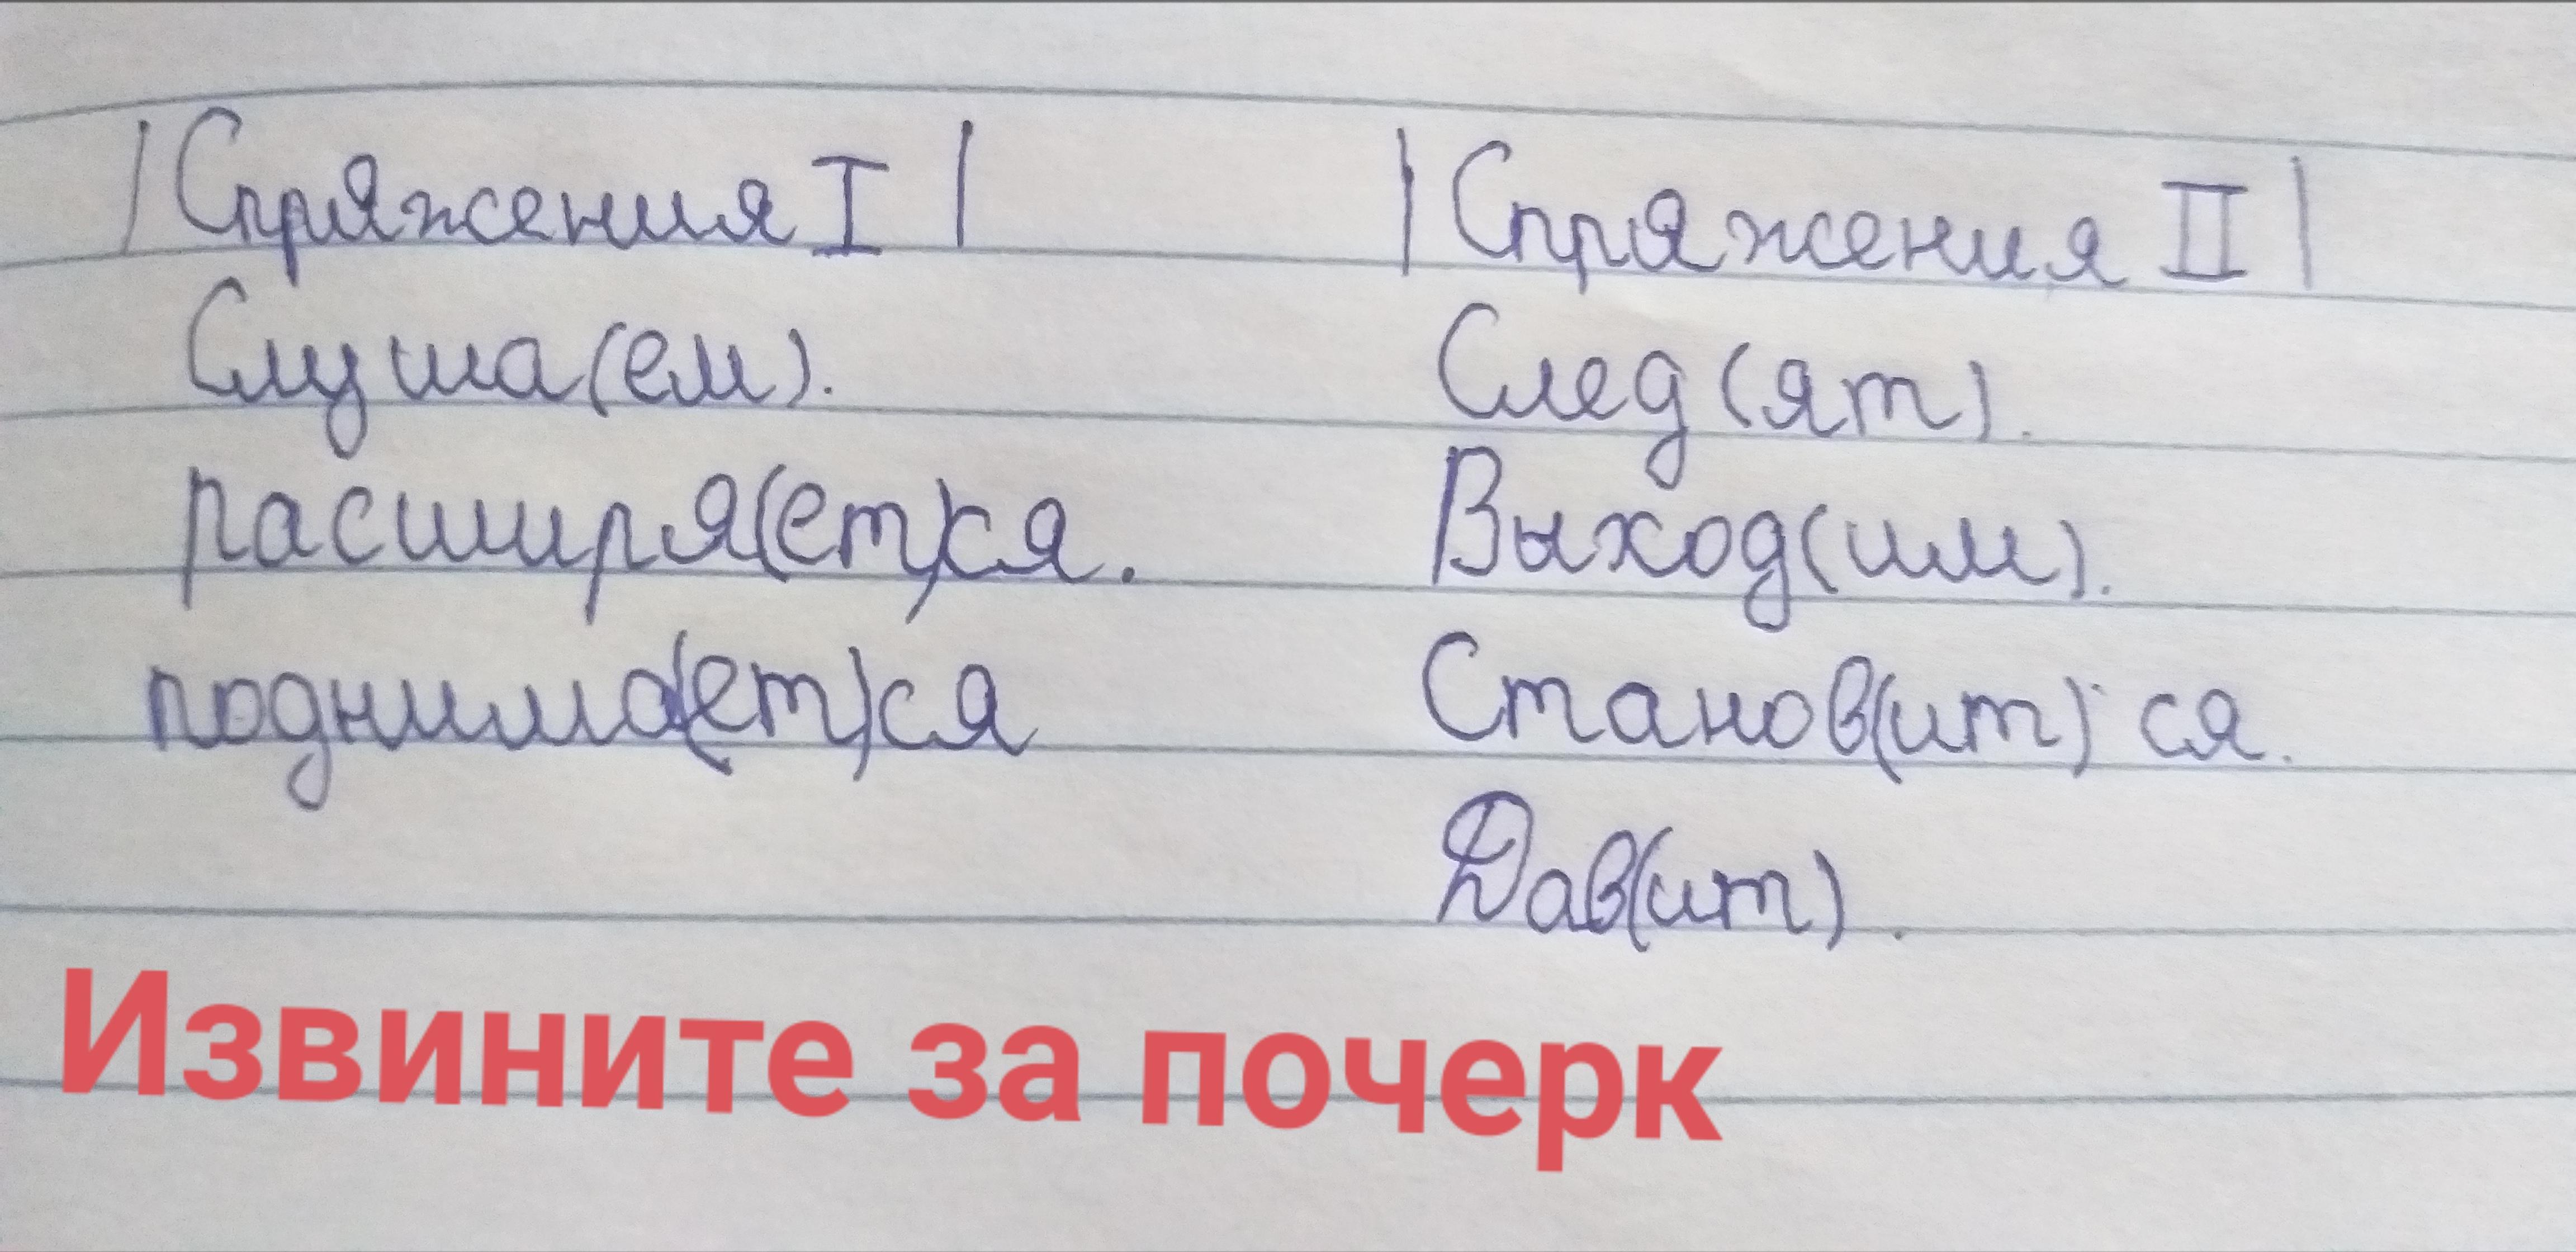 |Спряжения I|
Слуша(ем).
расширя(ет)ся.
поднима(ет)ся
|Спряжения II|
След(ят).
Выход(им).
Станов(ит) ся.
Дав(ит).
Извините за почерк